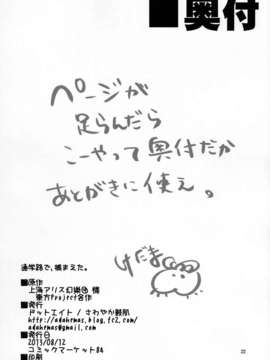 ■奥付
ページが
足らんだら
こーやって奥付だか
あとがきに使え。
けだま
通学路で、捕まえた。
■原作
上海アリス幻樂団 様
東方Project合作
■発行
ドットエイト / さわやか鮫肌
http://adahcmas.blog.fc2.com/
adahcmas@gmail.com
■発行日
2013/08/12
コミックマーケット84
■印刷
22